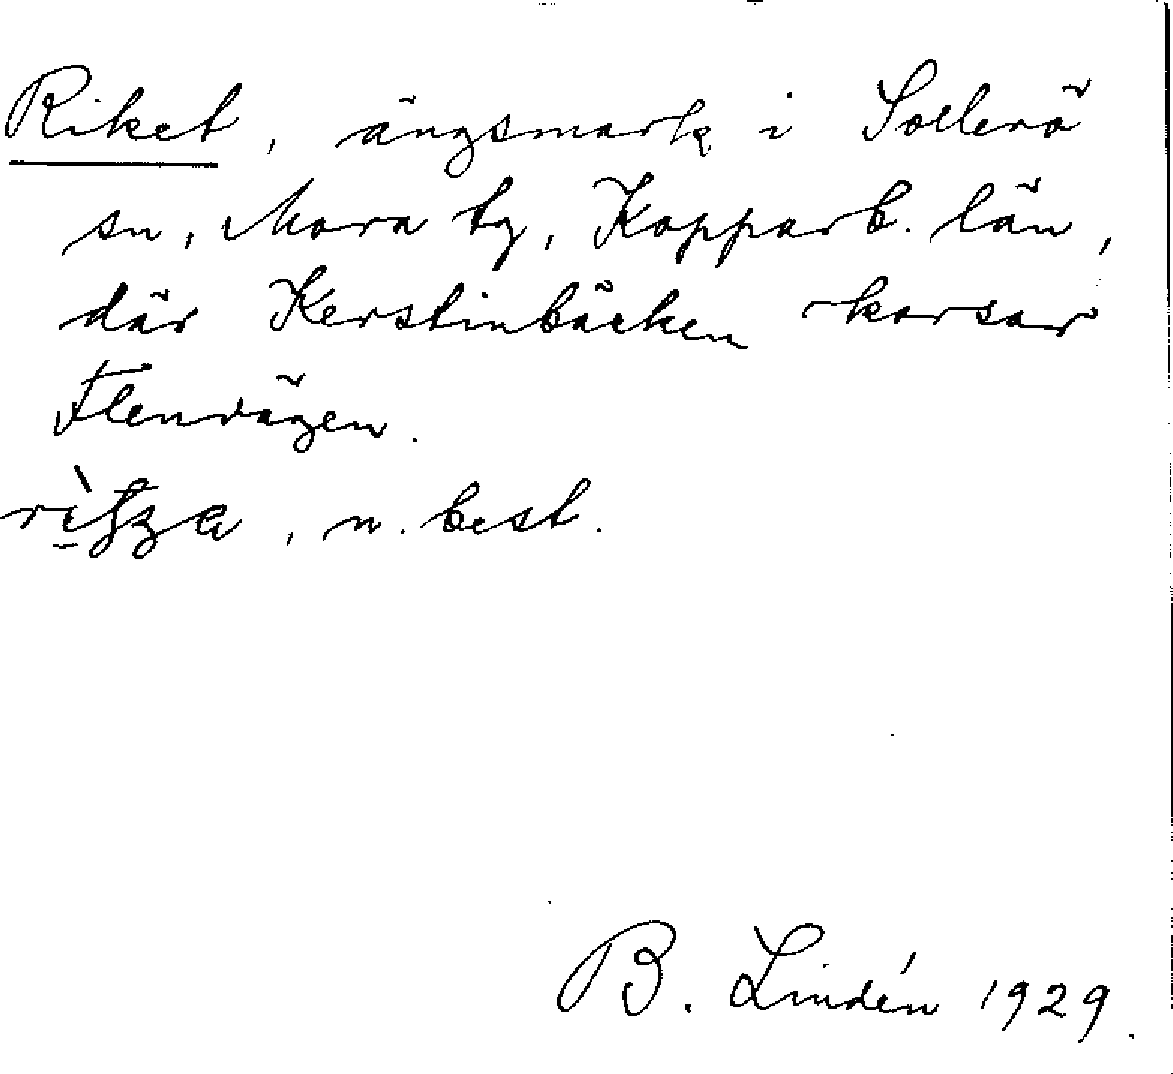 Riket, ängsmark i Sollerö
sn, Mora by, Kopparb. län,
där Kerstinbäcken korsar
Flenvägen.
, n. best.
B. Lindén 1929.